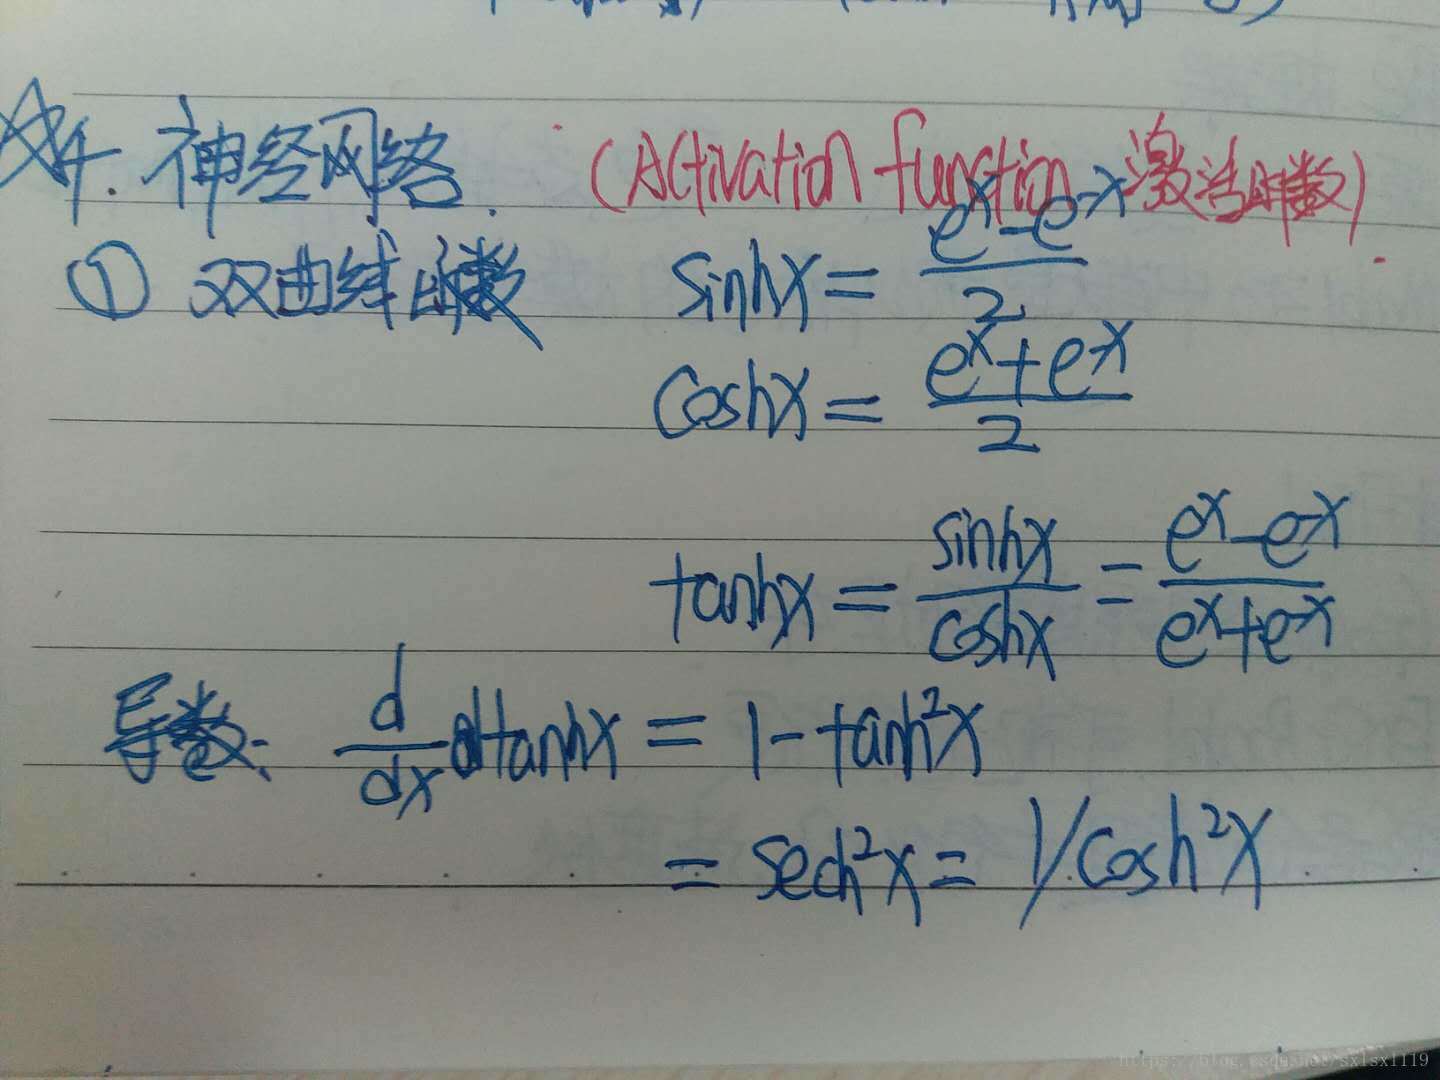 ☆4. 神经网络. (Activation function 激活函数).
① 双曲线函数 sinhx = (e^x - e^-x)/2
coshx = (e^x + e^-x)/2
tanhx = sinhx/coshx = (e^x - e^-x)/(e^x + e^-x)
导数: d/dx dtanhx = 1 - tanh²x
= sech²x = 1/cosh²x